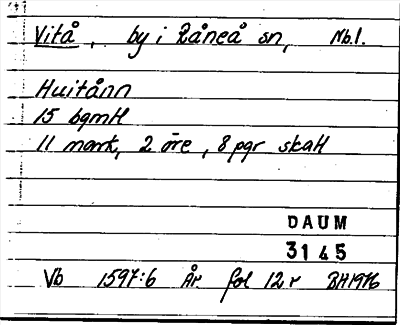 Vitå, by i Råneå sn, Nb.l.
Huitånn
15 bgmtl
11 mark, 2 öre, 8 pgr skatt
DAUM
3145
Vb 1597:6 År. fol 12r BH1976